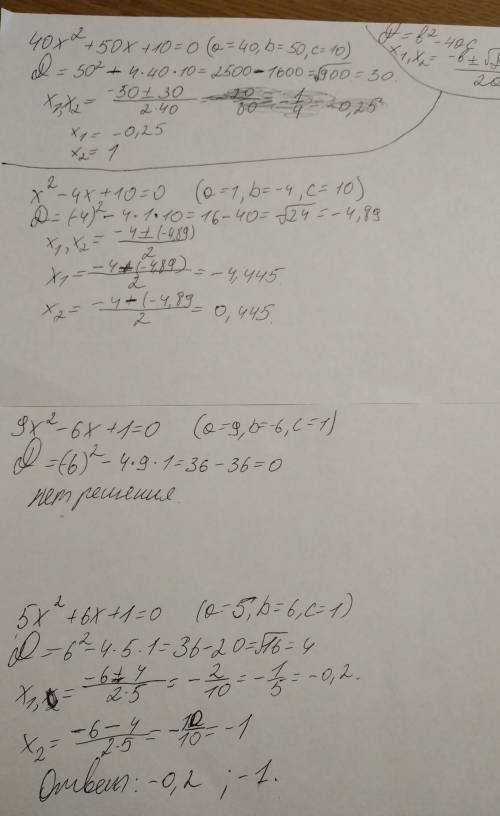 40x² + 50x + 10 = 0 (a = 40, b = 50, c = 10)
D = 50² - 4·40·10 = 2500 - 1600 = √900 = 30
x₁,x₂ = (-30 ± 30)/(2·40) = -20/80 = -1/4 = -0,25
x₁ = -0,25
x₂ = 1
D = b² - 4ac
x₁,x₂ =
x² - 4x + 10 = 0 (a = 1, b = -4, c = 10)
D = (-4)² - 4·1·10 = 16 - 40 = √24 = -4,89
x₁,x₂ = (-4 ± (-4,89))/2
x₁ = (-4 + (-4,89))/2 = -4,445
x₂ = (-4 - (-4,89)/2 = 0,445
9x² - 6x + 1 = 0 (a = 9, b = -6, c = 1)
D = (-6)² - 4·9·1 = 36 - 36 = 0
нет решения
5x² + 6x + 1 = 0 (a = 5, b = 6, c = 1)
D = 6² - 4·5·1 = 36 - 20 = √16 = 4
x₁ = (-6 + 4)/(2·5) = -2/10 = -1/5 = -0,2.
x₂ = (-6 - 4)/(2·5) = -10/10 = -1
Ответ: -0,2 ; -1.